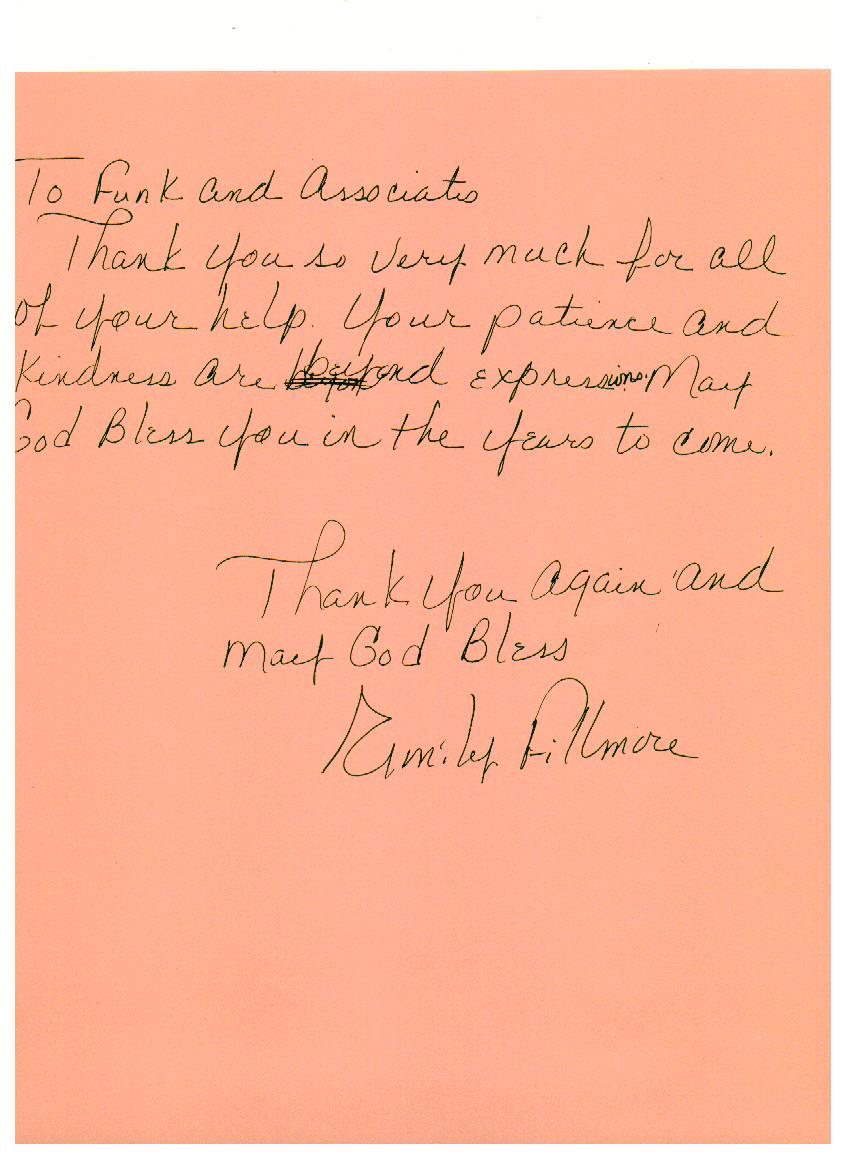 To Funk and Associates
Thank you so very much for all
of your help. Your patience and
kindness are beyond expressions. May
God Bless you in the years to come.
Thank you again and
may God Bless
Emily Fillmore